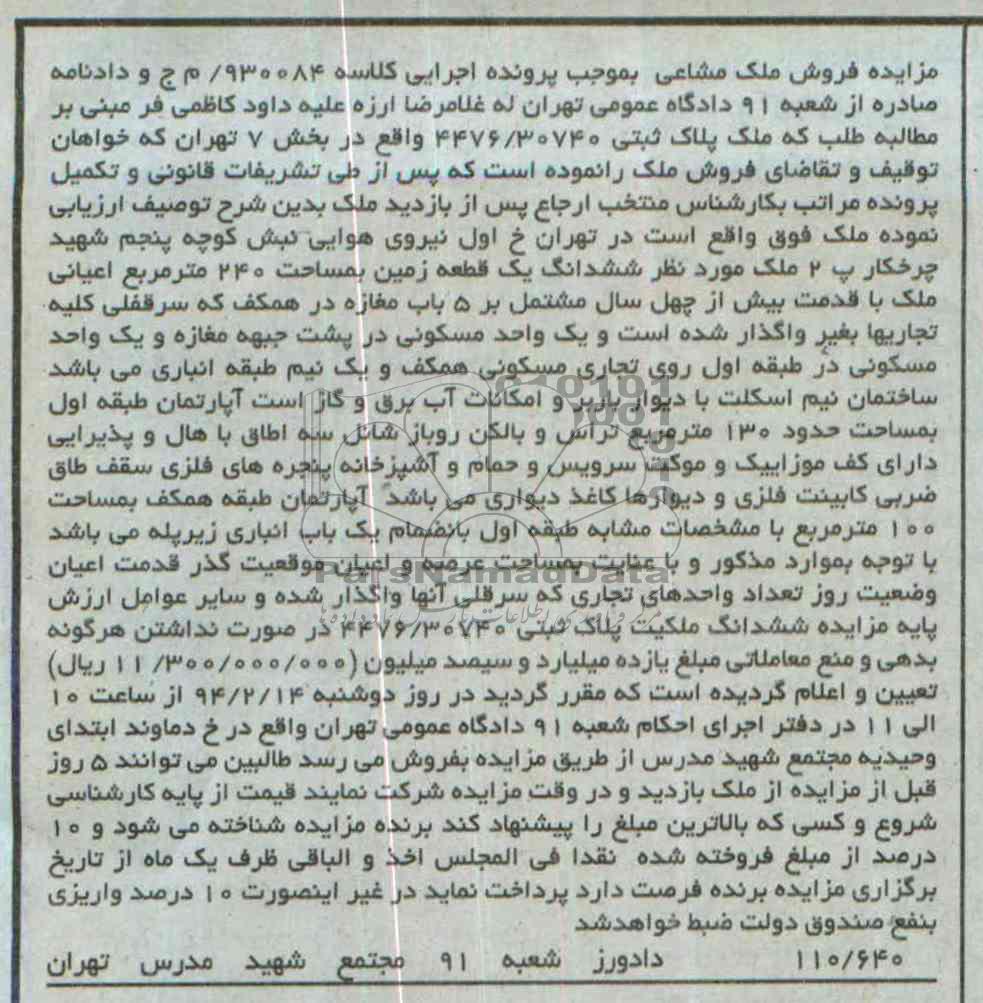 مزایده فروش ملک مشاعی بموجب پرونده اجرایی کلاسه ۹۳۰۰۸۴/ م ج و دادنامه
صادره از شعبه ۹۱ دادگاه عمومی تهران له غلامرضا ارزه علیه داود کاظمی فر مبنی بر
مطالبه طلب که ملک پلاک ثبتی ۴۴۷۶/۳۰۷۴۰ واقع در بخش ۷ تهران که خواهان
توقیف و تقاضای فروش ملک رانموده است که پس از طی تشریفات قانونی و تکمیل
پرونده مراتب بکارشناس منتخب ارجاع پس از بازدید ملک بدین شرح توصیف ارزیابی
نموده ملک فوق واقع است در تهران خ اول نیروی هوایی نبش کوچه پنجم شهید
چرخکار پ ۲ ملک مورد نظر ششدانگ یک قطعه زمین بمساحت ۲۴۰ مترمربع اعیانی
ملک با قدمت بیش از چهل سال مشتمل بر ۵ باب مغازه در همکف که سرقفلی کلیه
تجاریها بغیر واگذار شده است و یک واحد مسکونی در پشت جبهه مغازه و یک واحد
مسکونی در طبقه اول روی تجاری مسکونی همکف و یک نیم طبقه انباری می باشد
ساختمان نیم اسکلت با دیوار باربر و امکانات آب برق و گاز است آپارتمان طبقه اول
بمساحت حدود ۱۳۰ مترمربع تراس و بالکن روباز شامل سه اطاق با هال و پذیرایی
دارای کف موزاییک و موکت سرویس و حمام و آشپزخانه پنجره های فلزی سقف طاق
ضربی کابینت فلزی و دیوارها کاغذ دیواری می باشد آپارتمان طبقه همکف بمساحت
۱۰۰ مترمربع با مشخصات مشابه طبقه اول بانضمام یک باب انباری زیرپله می باشد
با توجه بموارد مذکور و با عنایت بمساحت عرصه و اعیان موقعیت گذر قدمت اعیان
ParsNamadData
وضعیت روز تعداد واحدهای تجاری که سرقلی آنها واگذار شده و سایر عوامل ارزش
پایه مزایده ششدانگ ملکیت پلاک ثبتی ۴۴۷۶/۳۰۷۴۰ در صورت نداشتن هرگونه
بدهی و منع معاملاتی مبلغ یازده میلیارد و سیصد میلیون (۱۱/۳۰۰/۰۰۰/۰۰۰ ریال)
تعیین و اعلام گردیده است که مقرر گردید در روز دوشنبه ۹۴/۲/۱۴ از ساعت ۱۰
الی ۱۱ در دفتر اجرای احکام شعبه ۹۱ دادگاه عمومی تهران واقع در خ دماوند ابتدای
وحیدیه مجتمع شهید مدرس از طریق مزایده بفروش می رسد طالبین می توانند ۵ روز
قبل از مزایده از ملک بازدید و در وقت مزایده شرکت نمایند قیمت از پایه کارشناسی
شروع و کسی که بالاترین مبلغ را پیشنهاد کند برنده مزایده شناخته می شود و ۱۰
درصد از مبلغ فروخته شده نقدا فی المجلس اخذ و الباقی ظرف یک ماه از تاریخ
برگزاری مزایده برنده فرصت دارد پرداخت نماید در غیر اینصورت ۱۰ درصد واریزی
بنفع صندوق دولت ضبط خواهدشد
۱۱۰/۶۴۰ دادورز شعبه ۹۱ مجتمع شهید مدرس تهران